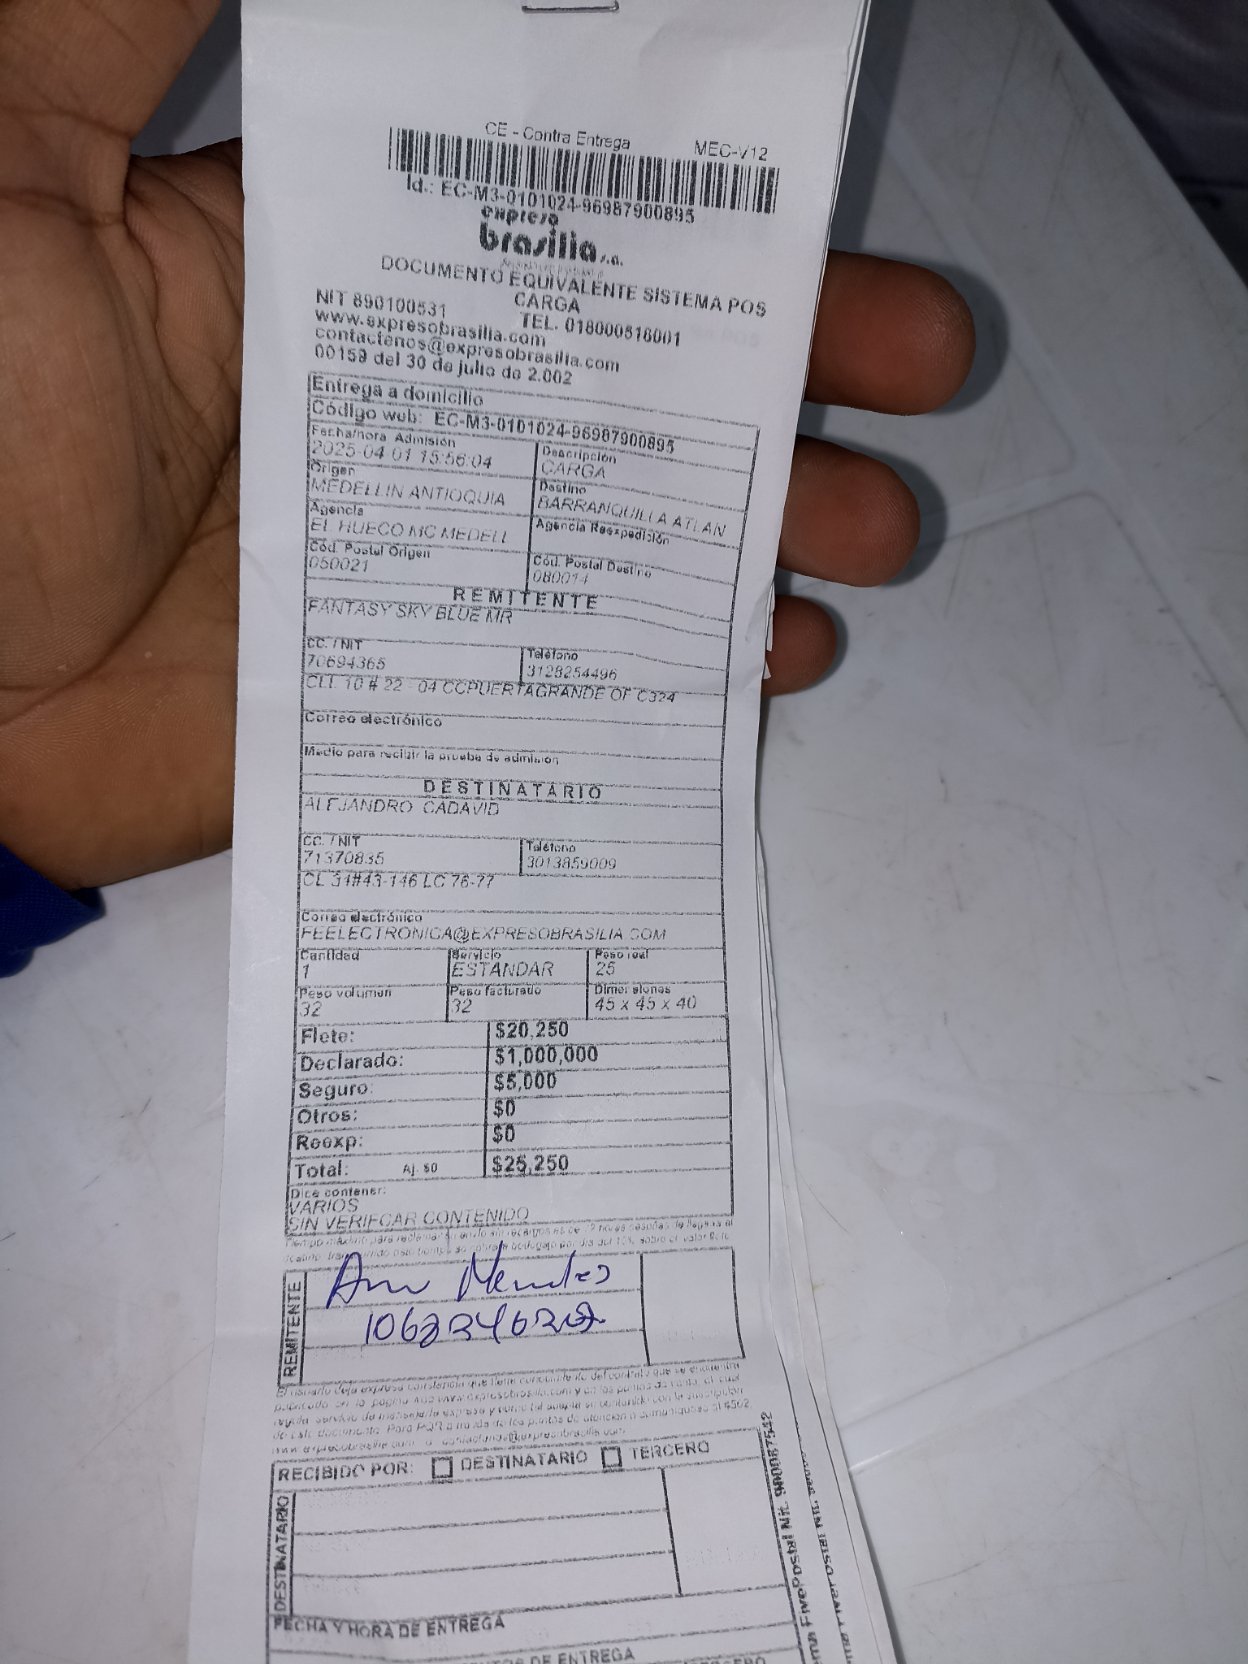 CE - Contra Entrega MEC-V12
Id.: EC-M3-0101024-96987900895
expreso
brasilia s.a.
DOCUMENTO EQUIVALENTE SISTEMA POS
CARGA
NIT 890100531 TEL. 018000518001
www.expresobrasilia.com
contactenos@expresobrasilia.com
00159 del 30 de julio de 2.002
Entrega a domicilio
Código web: EC-M3-0101024-96987900895
Fecha/hora Admisión Descripción
2025-04-01 15:56:04 CARGA
Origen Destino
MEDELLIN ANTIOQUIA BARRANQUILLA ATLAN
Agencia Agencia Reexpedición
EL HUECO MC MEDELL
Cód. Postal Origen Cód. Postal Destino
050021 080014
REMITENTE
FANTASY SKY BLUE MR
CC. / NIT Teléfono
70694365 3128254496
CLL 10 # 22 - 04 CCPUERTAGRANDE OF C324
Correo electrónico
Medio para recibir la prueba de admisión
DESTINATARIO
ALEJANDRO CADAVID
CC. / NIT Teléfono
71370835 3013859009
CL 34#43-146 LC 76-77
Correo electrónico
FEELECTRONICA@EXPRESOBRASILIA.COM
Cantidad Servicio Peso real
1 ESTANDAR 25
Peso volumen Peso facturado Dimensiones
32 32 45 x 45 x 40
Flete: $20,250
Declarado: $1,000,000
Seguro: $5,000
Otros: $0
Reexp: $0
Total: Aj. $0 $25,250
Dice contener:
VARIOS
SIN VERIFCAR CONTENIDO
REMITENTE
El usuario deja expresa constancia que tiene conocimiento del contrato que se encuentra
RECIBIDO POR: DESTINATARIO TERCERO
DESTINATARIO
FECHA Y HORA DE ENTREGA
DE ENTREGA
FivePostal Nit. 900087542